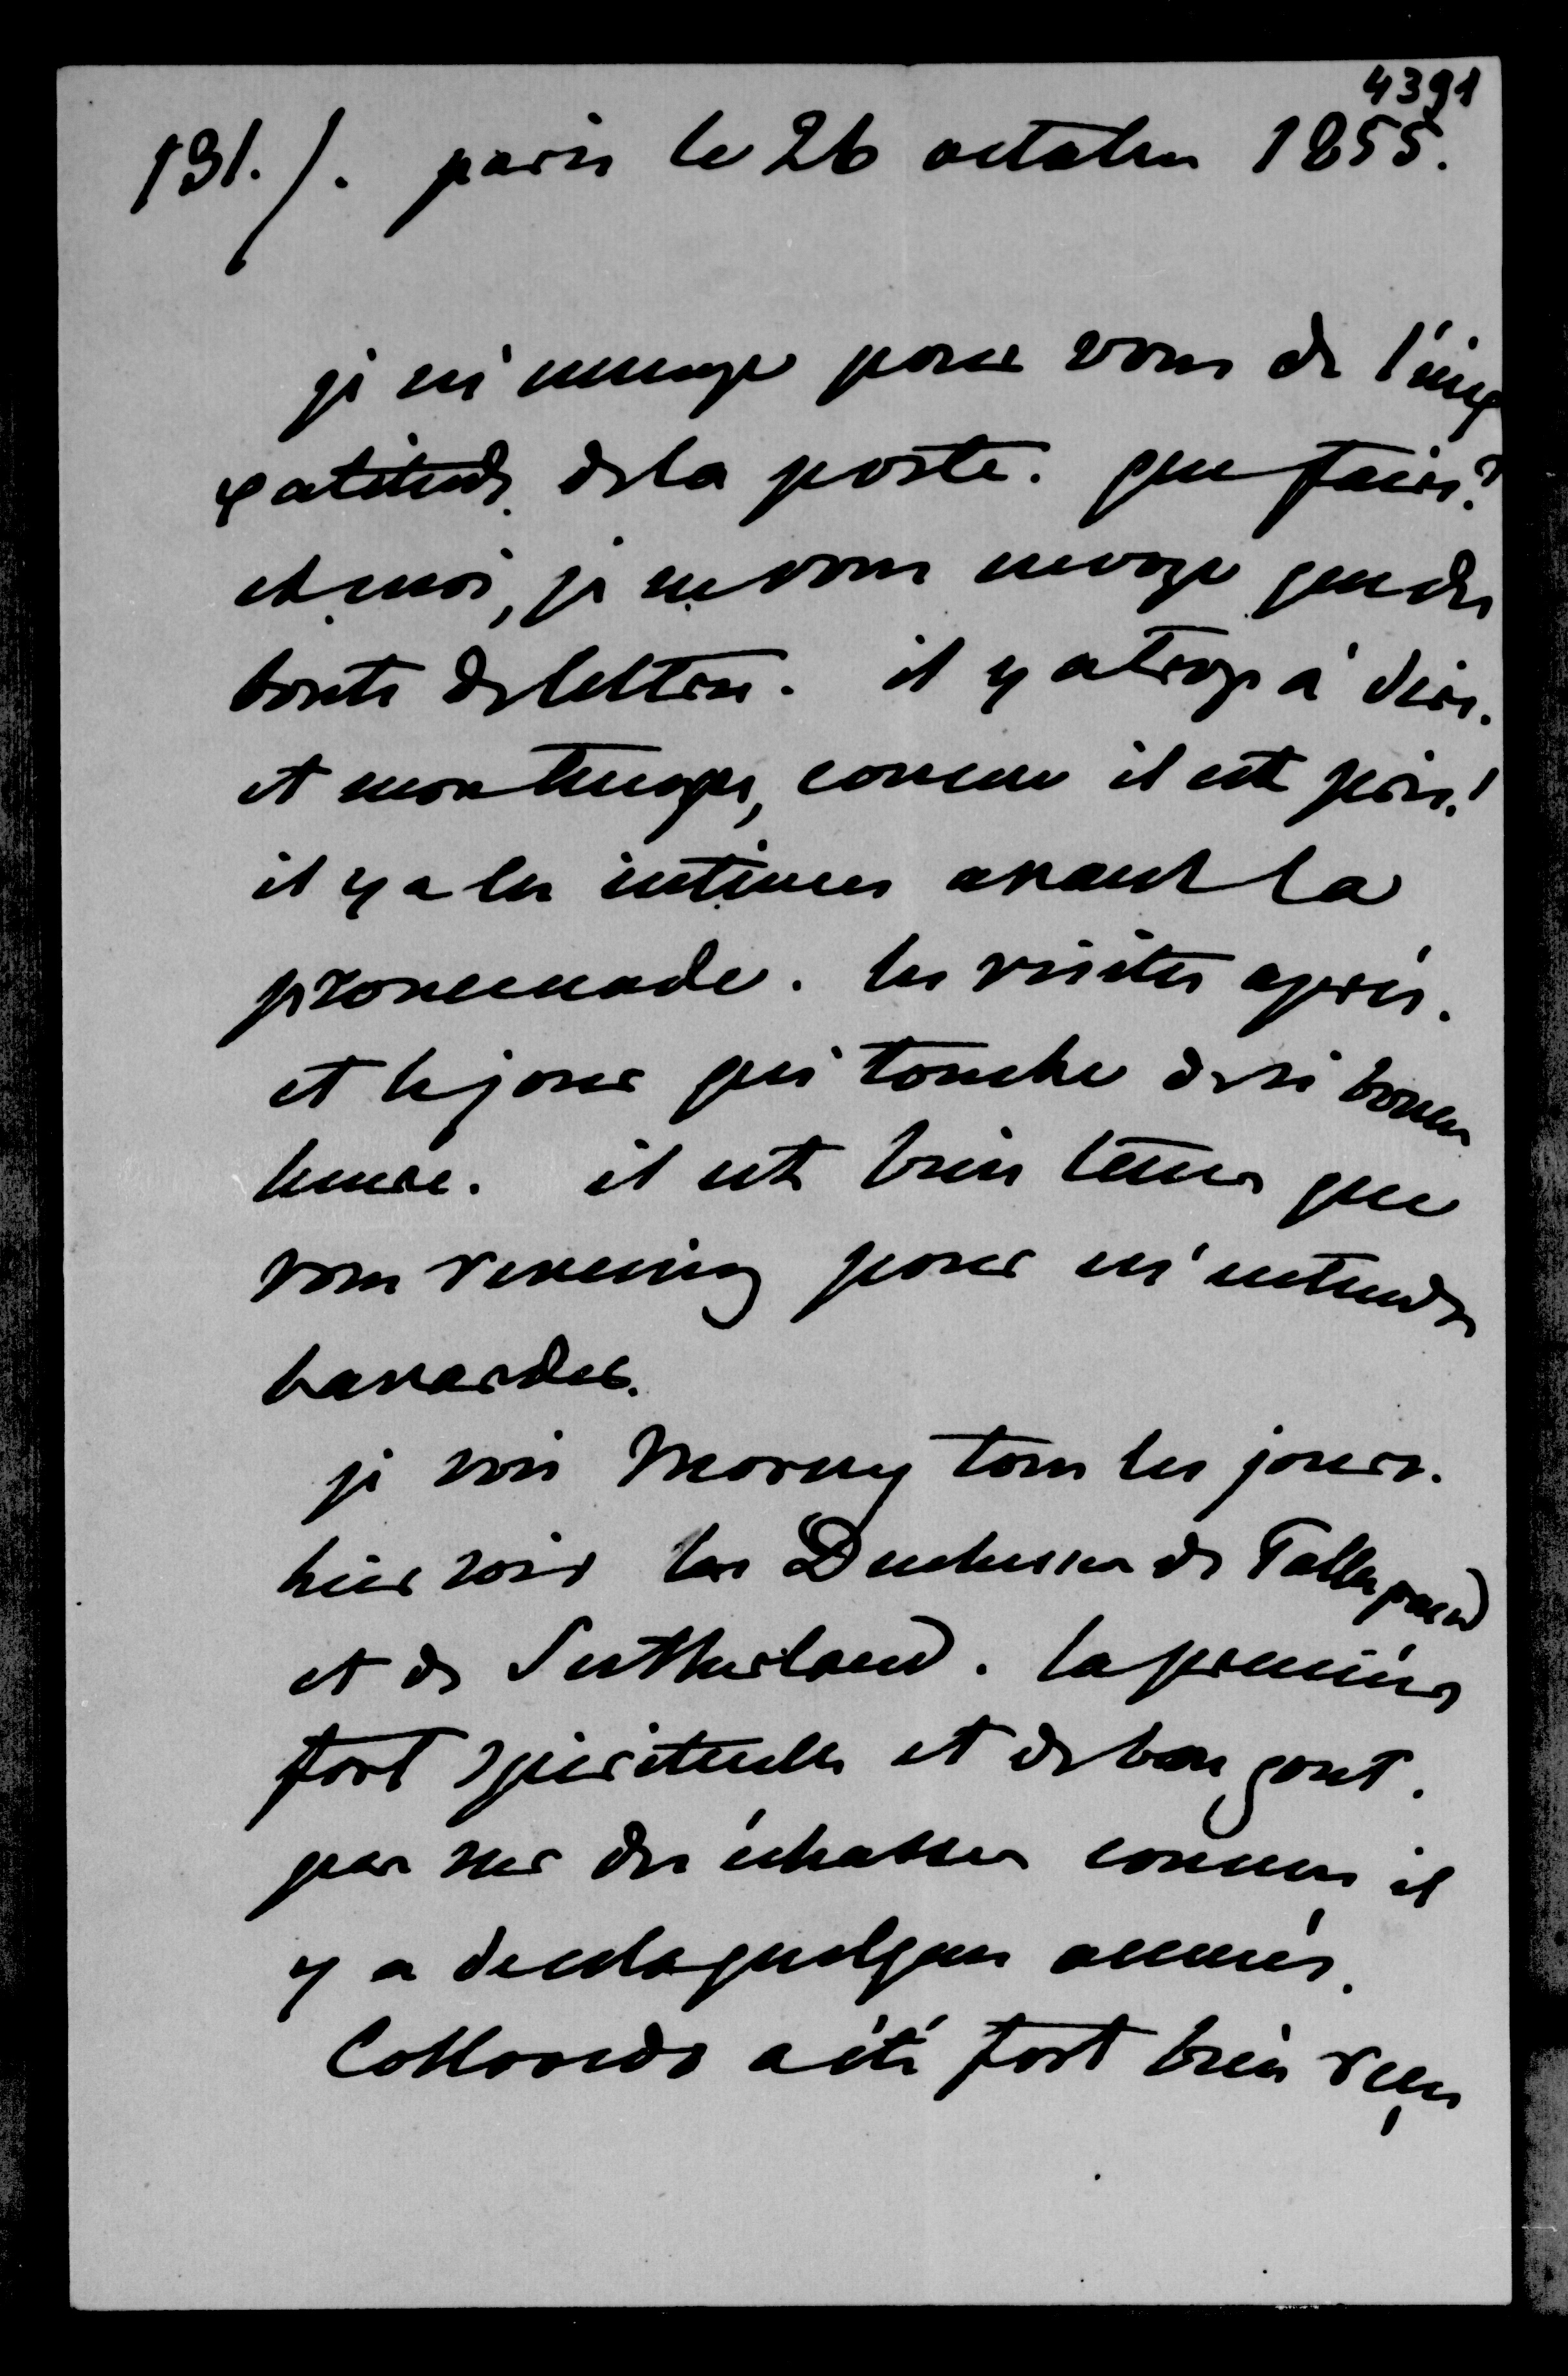 4391
131./. paris le 26 octobre 1855.
je m'ennuye pour vous de l'inex
xactitude de la poste. que faire?
et moi, je ne vous envoye que des
bouts de lettres. il y a trop à dire.
et mon temps, comme il est pris!
il y a les intimes avant la
promenade. les visites après.
et le jour qui tombe de si bonne
heure. il est bien tems que
vous reveniez pour m'entendre
bavarder.
je vois Morny tous les jours.
hier soir les Duchesses de Talleyrand
et de Sutherland. la première
fort spirituelle et de bon gout.
pas sur des échasses comme il
y a de cela quelques années.
Colloredo a été fort bien reçu